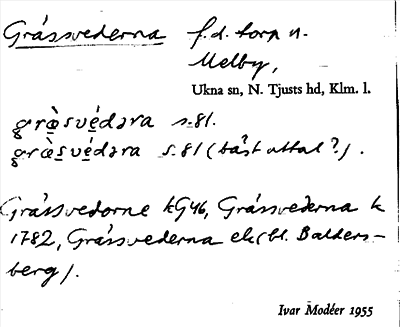 Gråssvederna f.d. torp u.
Melby,
Ukna sn, N. Tjusts hd, Klm. l.
græ̀svédəra s.81.
græ̀svédəra s.81 (bäst uttal?).
Gråssvedorne kG46, Gråssvederna k
1782, Gråssvederna ek (bl. Balders-
berg).
Ivar Modéer 1955